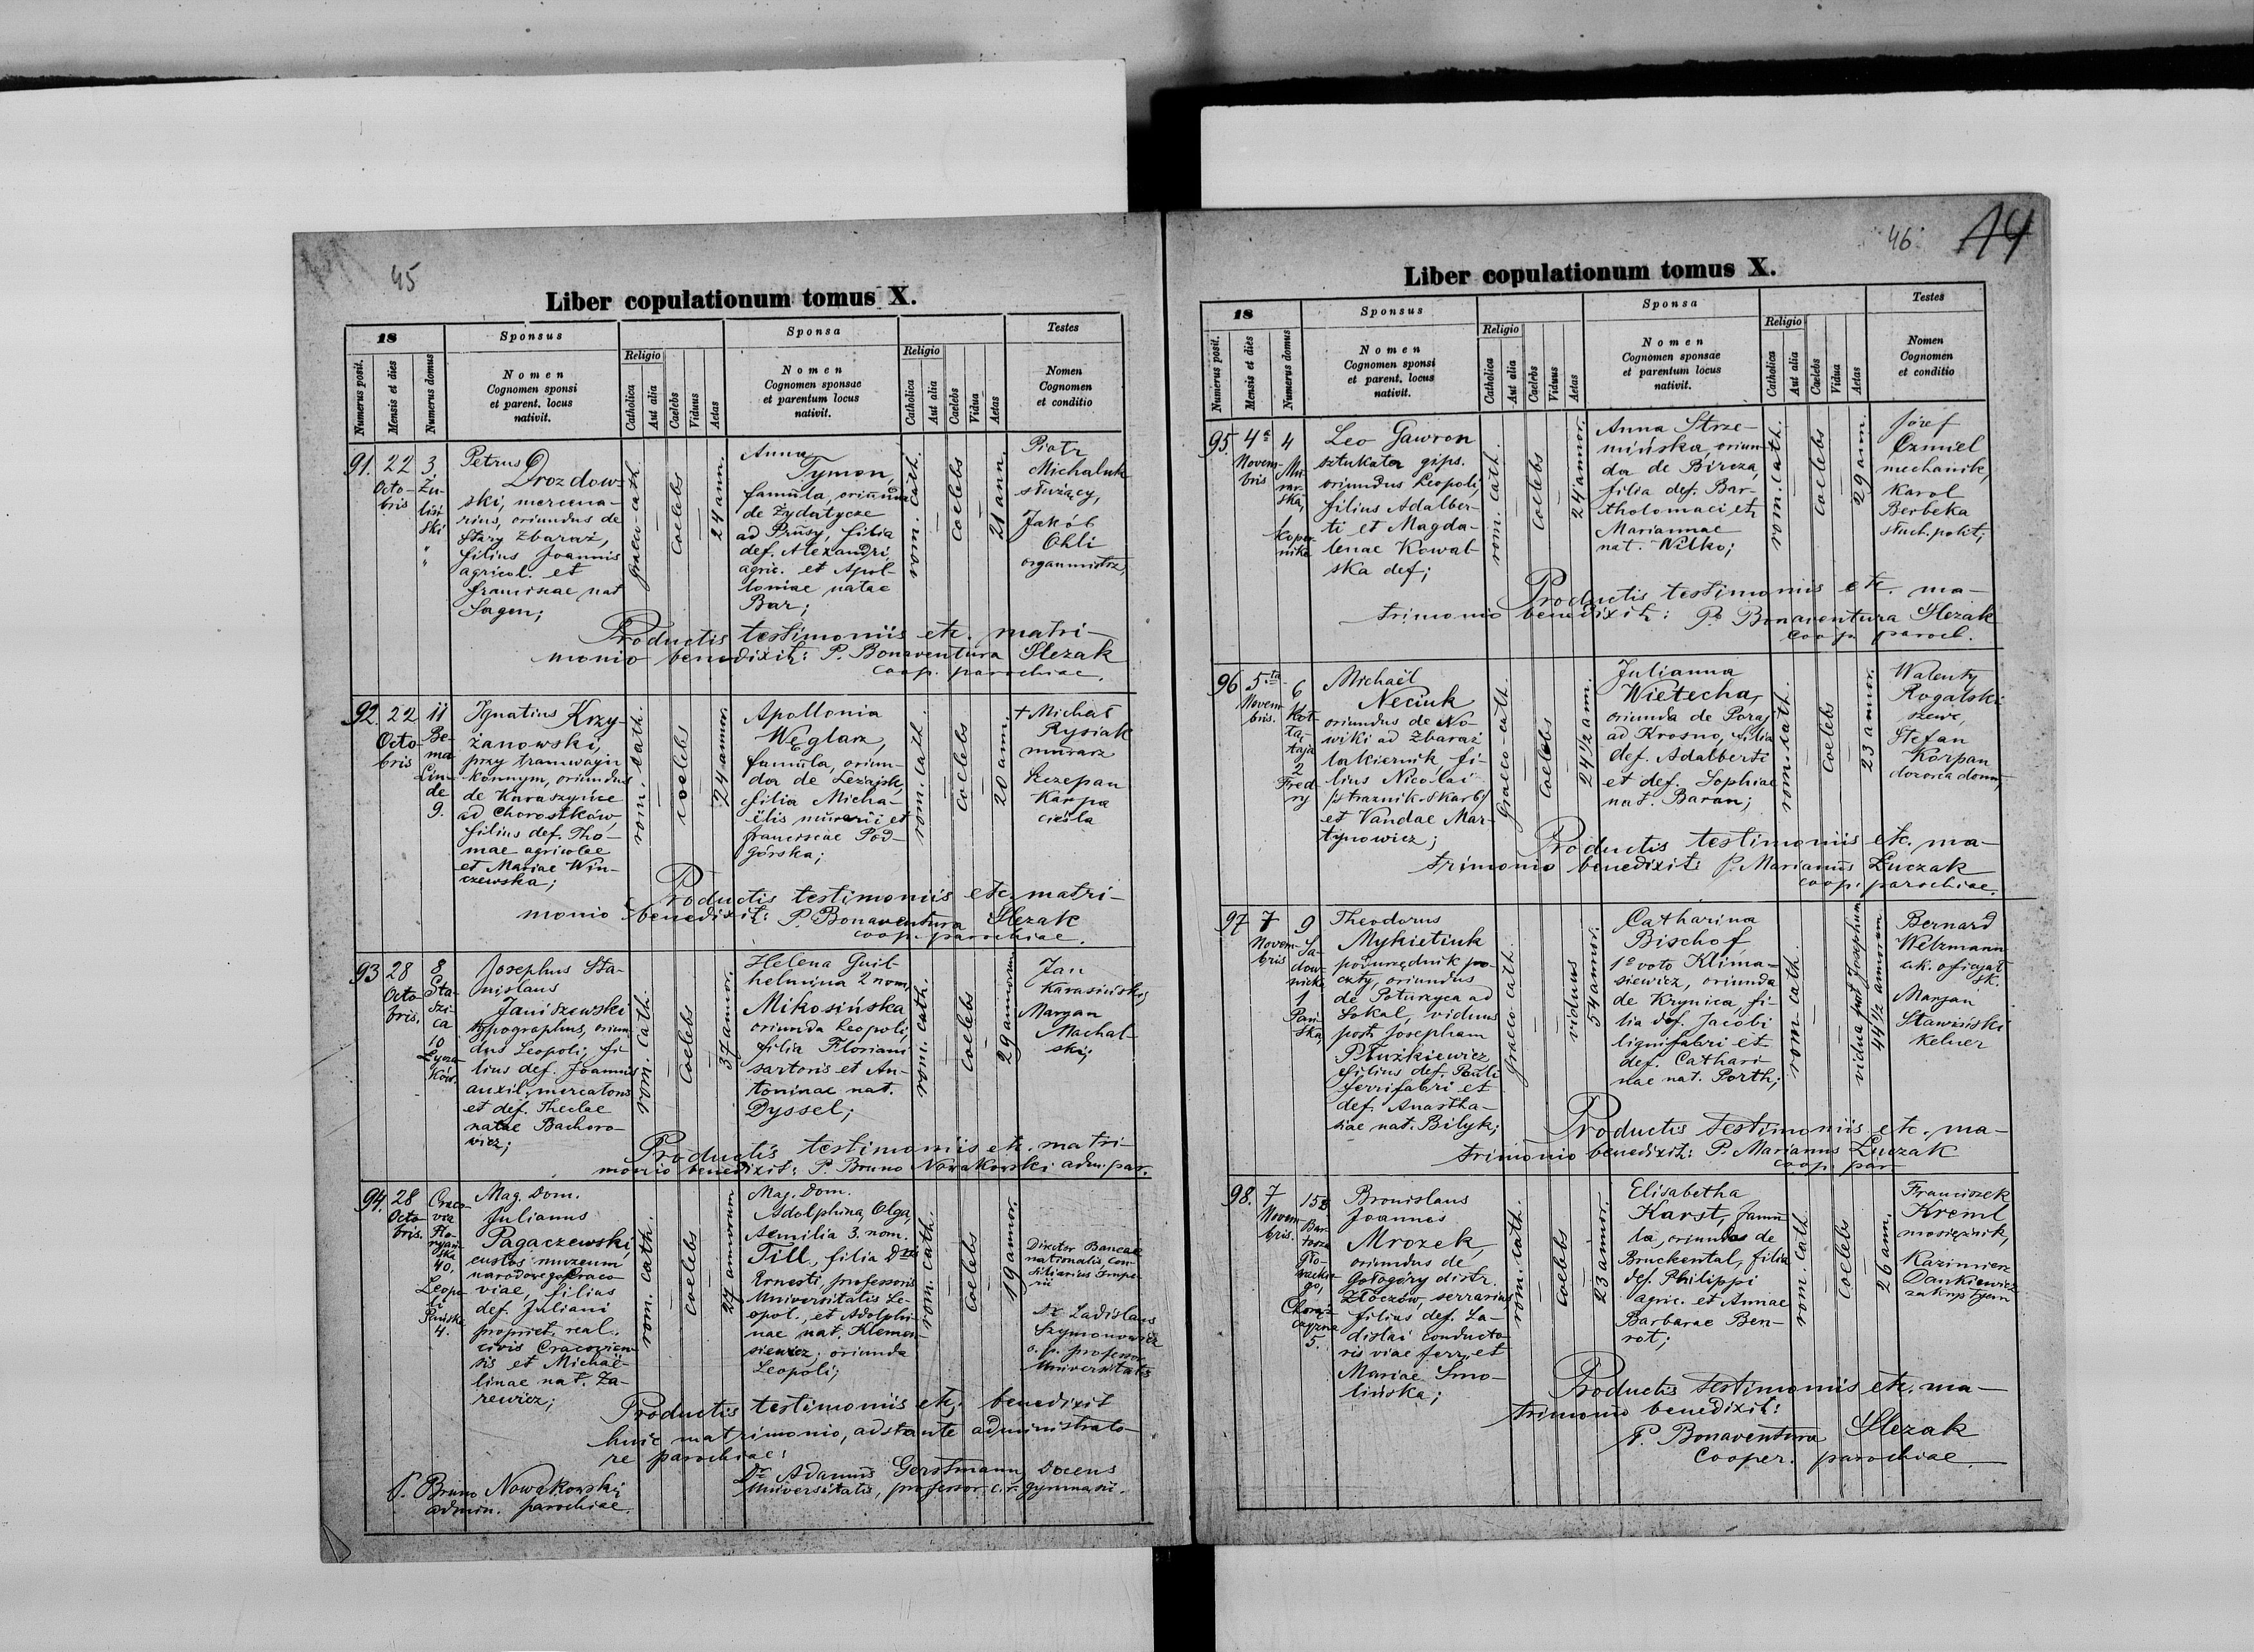 45
Liber copulationum tomus X.
18
Sponsus
Sponsa
Testes
Numerus posit.
Mensis et dies
Numerus domus
Nomen
Cognomen sponsi
et parent. locus
nativit.
Religio
Catholica
Aut alia
Caelebs
Viduus
Aetas
Nomen
Cognomen sponsae
et parentum locus
nativit.
Religio
Catholica
Aut alia
Caelebs
Vidua
Aetas
Nomen
Cognomen
et conditio
91.
22
Octo-
bris
3,
Żu-
liń-
ski
"
"
Petrus
Drozdow-
ski, mercena-
rius, oriundus de
Stary Zbaraż,
filius Joannis
agricol. et
Franciscae nat
Sagen;
graeco-cath.
coelebs
24 ann.
Anna
Tymon,
famula, oriunda
de Żydatycze
ad Prusy, filia
def. Alexandri,
agric. et Apol-
loniae natae
Bar;
rom. cath.
coelebs
21 ann.
Piotr
Michaluk
służący,
Jakób
Ohli
organmistrz,
Productis testimoniis etc. matri-
monio benedixit: P. Bonaventura Slezak
coop. parochiae.
92.
22
Octo-
bris
11
Be-
ma
Lin-
de
9.
Ignatius Krzy-
żanowski,
przy tramwaju
konnym, oriundus
de Karaszyńce
ad Chorostków,
filius def. Tho-
mae agricolae
et Mariae Win-
czewska;
rom. cath.
coelebs
24 annor.
Apollonia
Węglarz,
famula, oriun-
da de Leżajsk,
filia Micha-
ëlis murarii et
Franciscae Pod-
górska;
rom. cath.
coelebs
20 ann.
+ Michał
Rysiak
murarz
Szczepan
Karpa
cieśla
Productis testimoniis etc. matri-
monio benedixit: P. Bonaventura Slezak
coop. parochiae.
93
28
Octo-
bris.
8
Sta-
szi-
ca
10
Łycza-
ków.
Josephus Sta-
nislaus
Janiszewski
typographus, oriun-
dus Leopoli, fi-
lius def. Joannis
auxil. mercatoris
et def. Theclae
natae Bachoro-
wicz;
rom. cath.
coelebs
37 annor.
Helena Guil-
helmina 2 nom.
Mikosińska
oriunda Leopoli,
filia Floriani
sartoris et An-
toninae nat.
Dyssel;
rom. cath.
coelebs
29 annorum
Jan
Karasiński,
Maryan
Machal-
ski;
Productis testimoniis etc. matri-
monio benedixit: P. Bruno Nowakowski adm. par.
94.
28
Octo-
bris.
Craco-
via
Flo-
ryań-
ska
40.
Leopo-
li
Pańska
4.
Mag. Dom.
Julianus
Pagaczewski,
custos muzeum
narodowego Craco-
viae, filius
def. Juliani
propriet. real.
civis Cracovien-
sis et Michaë-
linae nat. Za-
rewicz;
rom. cath.
coelebs
27 annorum
Mag. Dom.
Adolphina, Olga,
Aemilia 3. nom.
Till, filia Dris
Ernesti, professoris
Universitatis Le-
opol., et Adolphi-
nae nat. Klemen-
siewicz, oriunda
Leopoli;
rom. cath.
coelebs
19 annor.
Director Bancae
nationalis, con-
siliarius Impe-
rii
Dr. Ladislaus
Szymonowicz
o. p. professor
Universitatis
Productis testimoniis etc. benedixit
huic matrimonio, adstante administrato-
re parochiae:
Dr. Adamus Gerstmann, Docens
Universitatis, professor c. r. gymnasii.
P. Bruno Nowakowski
admin. parochiae.
46.
14
Liber copulationum tomus X.
18
Sponsus
Sponsa
Testes
Numerus posit.
Mensis et dies
Numerus domus
Nomen
Cognomen sponsi
et parent. locus
nativit.
Religio
Catholica
Aut alia
Caelebs
Viduus
Aetas
Nomen
Cognomen sponsae
et parentum locus
nativit.
Religio
Catholica
Aut alia
Caelebs
Vidua
Aetas
Nomen
Cognomen
et conditio
95.
4a
Novem-
bris
4
Mu-
rar-
ska,
Koper-
nika
Leo Gawron
sztukator gips.
oriundus Leopoli,
filius Adalber-
ti et Magda-
lenae Kowal-
ska def;
rom. cath.
coelebs
24 annor.
Anna Strze-
mińska, oriun-
da de Bircza,
filia def. Bar-
tholomaei et
Mariannae
nat. Wilko;
rom. cath.
coelebs
29 ann.
Józef
Czmiel
mechanik,
Karol
Berbeka
słuch. polit;
Productis testimoniis etc. ma-
trimonio benedixit: P. Bonaventura Slezak
coop. paroch.
96
5ta
Novem-
bris.
6
Koł-
łą-
taja
2
Fred-
ry
Michaël
Neciuk
oriundus de No-
wiki ad Zbaraż
lakiernik, fi-
lius Nicolai
/strażnik skarb/
et Vandae Mar-
tynowicz;
graeco-cath.
coelebs
24 1/2 ann.
Julianna
Wietecha,
oriunda de Poraj
ad Krosno, filia
def. Adalberti
et def. Sophiae
nat. Baran;
rom. cath.
coelebs
23 annor.
Walenty
Rogalski
szewc,
Stefan
Korpan
dozorca domu,
Productis testimoniis etc. ma-
trimonio benedixit: P. Marianus Łuczak
coop. parochiae.
97
7
Novem-
bris
9
Sa-
dow-
nicka
1
Pań-
ska,
Theodorus
Mykietiuk
podurzędnik po-
czty, oriundus
de Poturzyca ad
Sokal, viduus
post Josepham
Płużkiewicz
filius def. Pauli
ferrifabri et
def. Anastha-
siae nat. Bilyk;
Graeco-cath.
viduus
54 annor.
Catharina
Bischof
1o voto Klima-
siewicz, oriunda
de Krynica, fi-
lia def. Jacobi
lignifabri et
def. Cathari-
nae nat. Porth;
rom cath.
vidua post Josephum
44 1/2 annorum
Bernard
Welzmann
ck. oficyał
sk.
Maryan
Stawiński
kelner
Productis testimoniis etc. ma-
trimonio benedixit: P. Marianus Łuczak
coop. par
98.
7
Novem-
bris.
15 B
Bar-
tosza
Gło-
wackie-
go,
Chorąż-
czyzna
5.
Bronislaus
Joannes
Mrozek,
oriundus de
Gołogóry distr.
Złoczów, serrarius,
filius def. La-
dislai conducto-
ris viae ferr. et
Mariae Smo-
lińska;
rom. cath.
coelebs
23 annor.
Elisabetha
Karst, famu-
la, oriunda de
Bruckental, filia
def. Philippi
agric. et Annae
Barbarae Ben-
rot;
rom. cath
coelebs
26 ann.
Franciszek
Kreml
mosiężnik,
Kazimierz
Dankiewicz
zakrystyan
Productis testimoniis etc. ma-
trimonio benedixit:
P. Bonaventura Slezak
Cooper. parochiae.